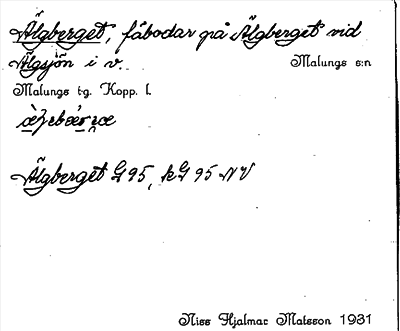 Älgberget, fäbodar på Älgberget vid
Älgsjön i v. Malungs s:n
Malungs tg. Kopp. l.
Älgberget G 95, kG 95 NV
Niss Hjalmar Matsson 1931